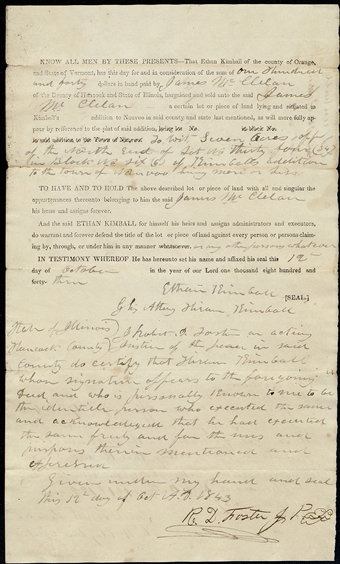 KNOW ALL MEN BY THESE PRESENTS—That Ethan Kimball of the county of Orange,
and State of Vermont, has this day for and in consideration of the sum of One Hundred
and forty dollars in hand paid by James McClelan
of the County of Hancock and State of Illinois, bargained and sold unto the said James
McClelan a certain lot or piece of land lying and situated in
Kimball's addition to Nauvoo in said county and state last mentioned, as will more fully ap-
pear by reference to the plat of said addition, being lot No. in block No.
in said addition to the Town of Nauvoo To Wit Seven Acres off
of the North End of Lot No thirty four (34)
in Block No six (6) of Kimballs Addition
to the town of Nauvoo being more or less
TO HAVE AND TO HOLD The above described lot or piece of land with all and singular the
appurtenances thereunto belonging to him the said James McClelan
his heirs and assigns forever.
And the said ETHAN KIMBALL for himself his heirs and assigns administrators and executors,
do warrant and forever defend the title of the lot or piece of land against every person or persons claim-
ing by, through, or under him in any manner whatsoever. or any other persons whatsoever
IN TESTIMONY WHEREOF He has hereunto set his name and affixed his seal this 12th
day of October in the year of our Lord one thousand eight hundred and
forty-three
Ethan Kimball [SEAL.]
By his Attorney Hiram Kimball
State of Illinois ) I Robert D. Foster an acting
Hancock County ) Justice of the peace in said
county do certify that Hiram Kimball
whose signature appears to the foregoing
deed and who is personally known to me to be
the identicle person who executed the same
and acknowledged that he had executed
the same freely and for the uses and
purposes therein mentioned and
expressed
Given under my hand and seal
this 12th day of Oct A.D. 1843
R. D. Foster J. P.